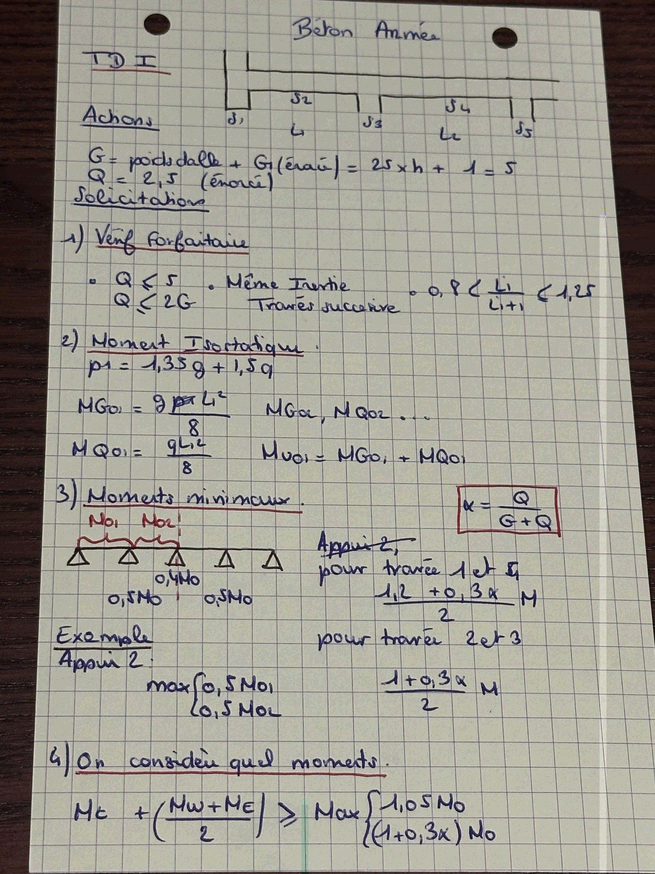 Béton Armée
TD I
S1 S2 S3 S4 S5
L1 L2
Actions
G = poids dalle + G1 (énoncé) = 25 x h + 1 = 5
Q = 2,5 (énoncé)
Solicitations
1) Vérif Forfaitaire
• Q ⩽ 5 • Même Inertie • 0,8 < Li / Li+1 < 1,25
Q ⩽ 2G Través successive
2) Moment Isostatique.
p1 = 1,35g + 1,5q
MG01 = g L1² / 8 MG02, MQ02 ...
MQ01 = qL1² / 8 Mu01 = MG01 + MQ01
3) Moments minimaux.
α = Q / G + Q
M01 M02
Appui 2,
pour travée 1 et 4
0,4M0
0,5M0 0,5M0
1,2 + 0,3α / 2 M
Exemple
pour travée 2 et 3
Appui 2:
max { 0,5 M01
0,5 M02
1 + 0,3α / 2 M
4) On considère quel moments.
Mt + (Mw + Me / 2) ⩾ Max { 1,05 M0
(1+0,3α) M0